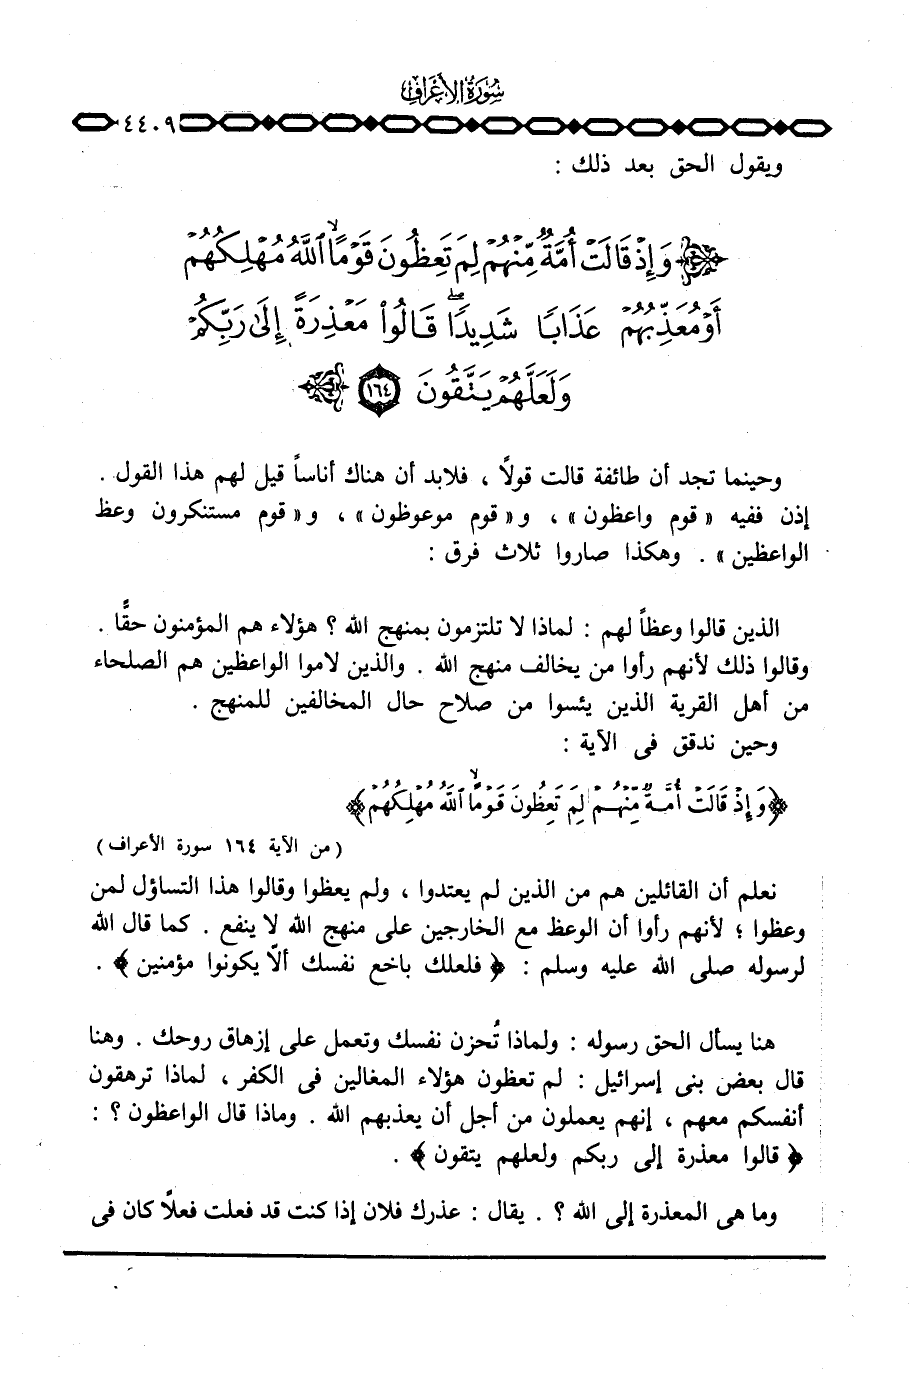 سورة الأعراف
٤٤٠٩
ويقول الحق بعد ذلك :
﴿ وَإِذْ قَالَتْ أُمَّةٌ مِّنْهُمْ لِمَ تَعِظُونَ قَوْمًا ۙ اللَّهُ مُهْلِكُهُمْ
أَوْ مُعَذِّبُهُمْ عَذَابًا شَدِيدًا ۖ قَالُوا مَعْذِرَةً إِلَىٰ رَبِّكُمْ
وَلَعَلَّهُمْ يَتَّقُونَ ١٦٤ ﴾
وحينما تجد أن طائفة قالت قولاً ، فلابد أن هناك أناساً قيل لهم هذا القول .
إذن ففيه « قوم واعظون » ، و« قوم موعوظون » ، و« قوم مستنكرون وعظ
الواعظين » . وهكذا صاروا ثلاث فرق :
الذين قالوا وعظاً لهم : لماذا لا تلتزمون بمنهج الله ؟ هؤلاء هم المؤمنون حقًّا .
وقالوا ذلك لأنهم رأوا من يخالف منهج الله . والذين لاموا الواعظين هم الصلحاء
من أهل القرية الذين يئسوا من صلاح حال المخالفين للمنهج .
وحين ندقق فى الآية :
﴿ وَإِذْ قَالَتْ أُمَّةٌ مِّنْهُمْ لِمَ تَعِظُونَ قَوْمًا ۙ اللَّهُ مُهْلِكُهُمْ ﴾
( من الآية ١٦٤ سورة الأعراف )
نعلم أن القائلين هم من الذين لم يعتدوا ، ولم يعظوا وقالوا هذا التساؤل لمن
وعظوا ؛ لأنهم رأوا أن الوعظ مع الخارجين على منهج الله لا ينفع . كما قال الله
لرسوله صلى الله عليه وسلم : ﴿ فلعلك باخع نفسك ألاّ يكونوا مؤمنين ﴾ .
هنا يسأل الحق رسوله : ولماذا تُحزن نفسك وتعمل على إزهاق روحك . وهنا
قال بعض بنى إسرائيل : لم تعظون هؤلاء المغالين فى الكفر ، لماذا ترهقون
أنفسكم معهم ، إنهم يعملون من أجل أن يعذبهم الله . وماذا قال الواعظون ؟ :
﴿ قالوا معذرة إلى ربكم ولعلهم يتقون ﴾ .
وما هى المعذرة إلى الله ؟ . يقال : عذرك فلان إذا كنت قد فعلت فعلاً كان فى